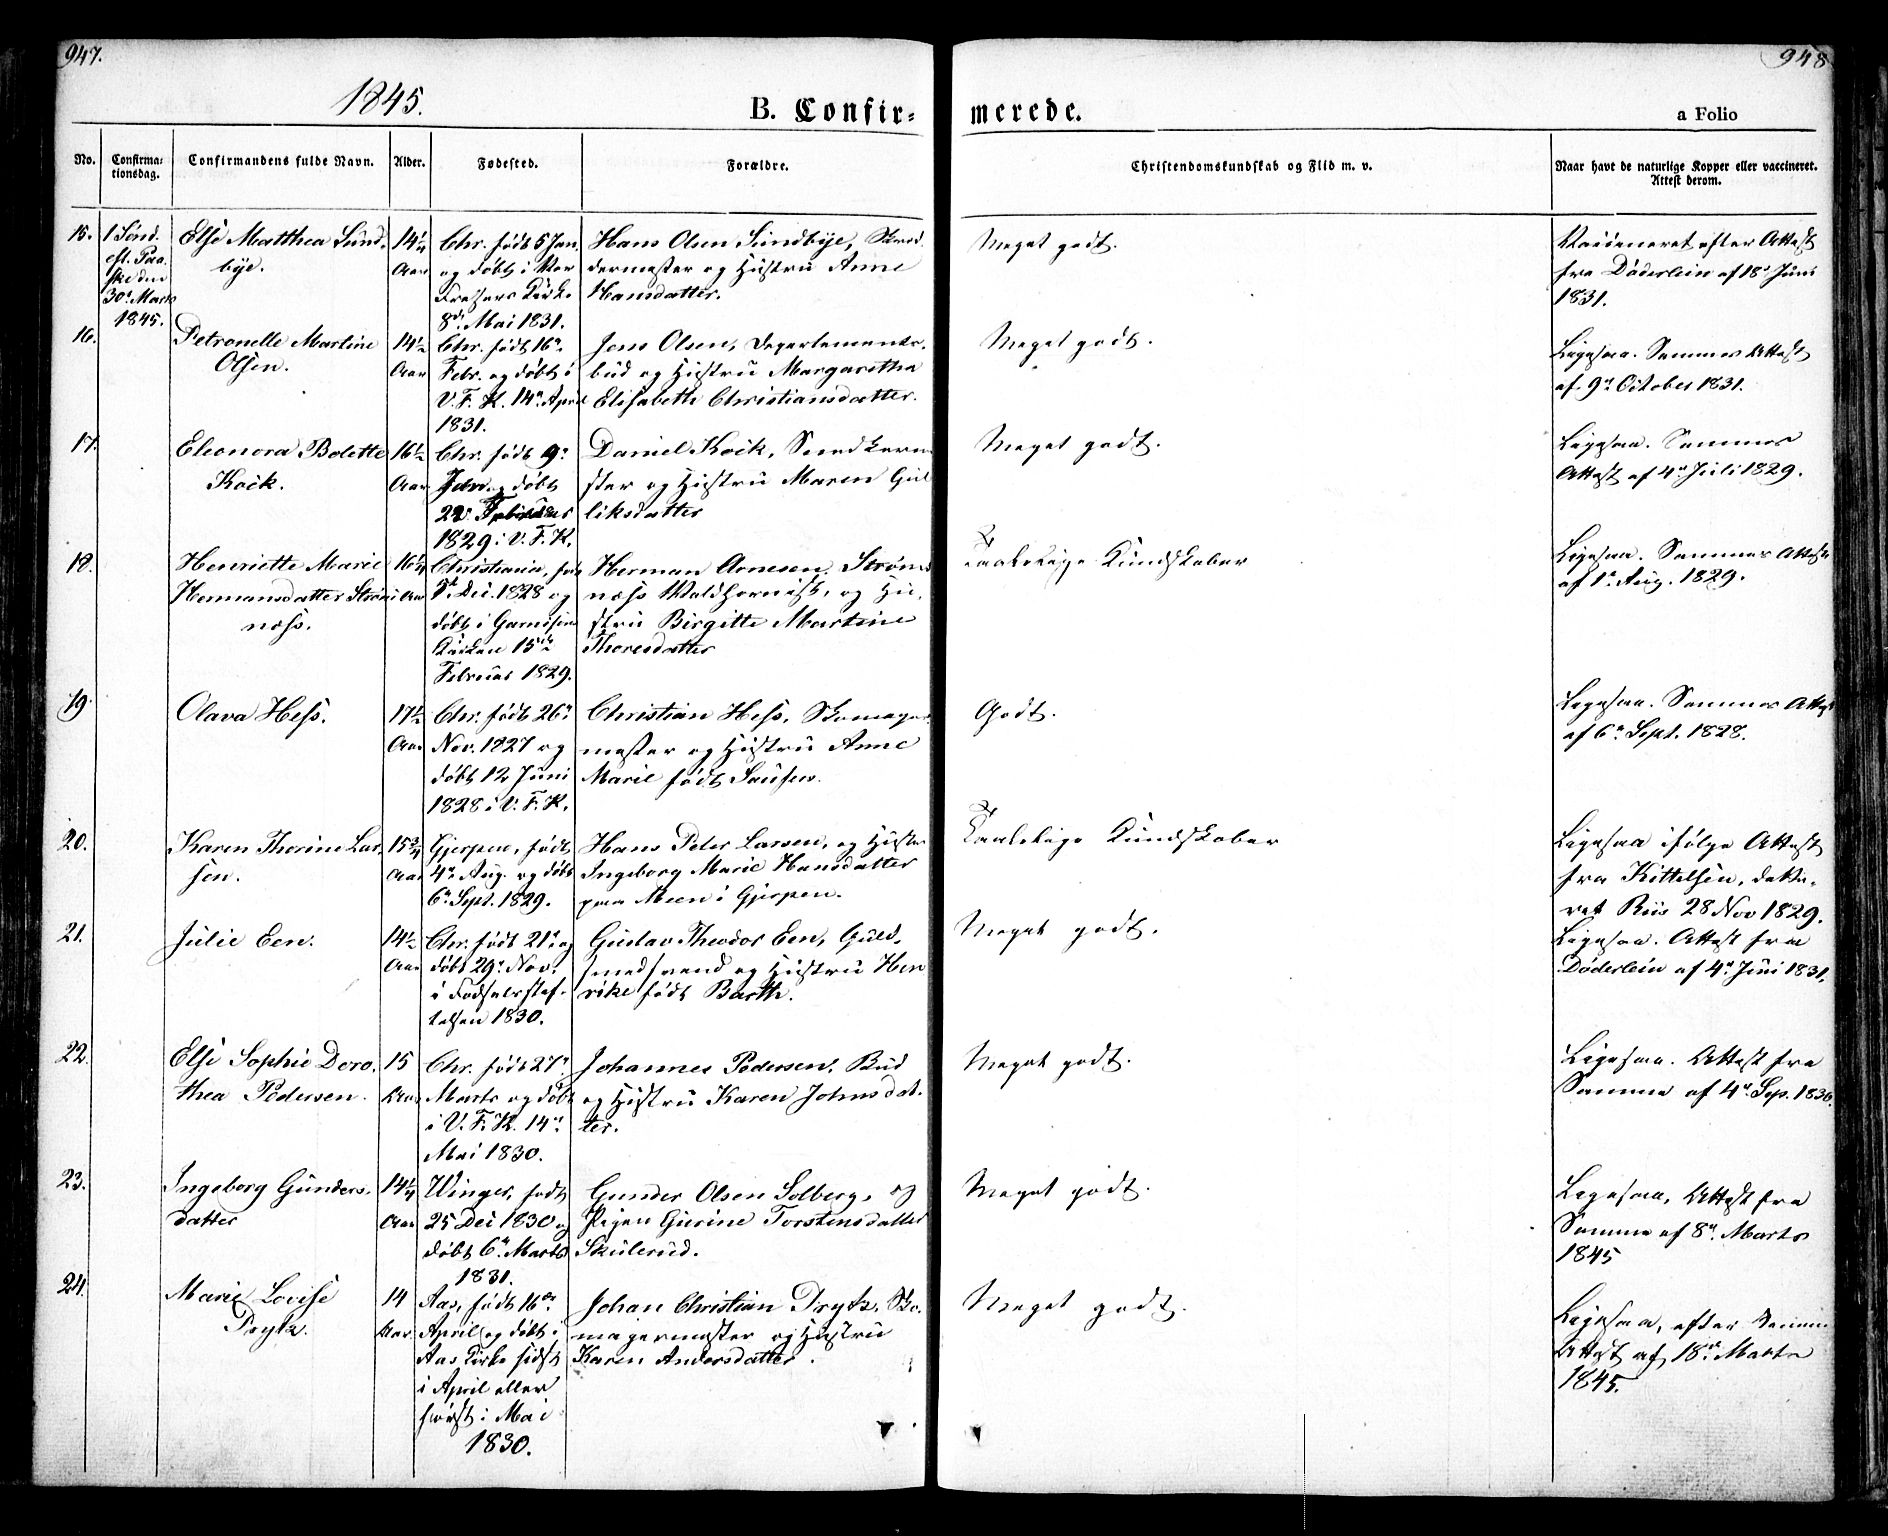 947.
948
1845.
B. Confir=
merede.
a Folio
No.
Confirma-
tionsdag.
Confirmandens fulde Navn.
Alder.
Fødested.
Forældre.
Christendomskundskab og Flid m. v.
Naar havt de naturlige Kopper eller vaccineret.
Attest derom.
15.
1 Sønd.
eft. Paa
ske den
30t Marts
1845.
Else Matthea Sund,
bye.
14 1/4
Aar
Chr. født 5 Jan.
og døbt i Vor
Frelsers Kirke
8de Mai 1831.
Hans Olsen Sundbye, Skræd
dermester og Hustru Anne
Hansdatter.
Meget godt.
Vaccineret efter Attest
fra Døderlein af 18de Juni
1831.
16.
Petronelle Martine
Olsen.
14 1/2
Aar
Chr. født 16de
Febr. og døbt i
V. F. K. 14de April
1831.
Jens Olsen, Departements,
bud og Hustru Margaretha
Elisabeth Christiansdatter.
Meget godt.
Ligesaa. Sammes Attest
af 9de October 1831.
17.
Eleonora Bolette
Kock.
16 1/2
Aar
Chr. født 9de
og døbt
22 Februar
1829 i V. F. K.
Daniel Kock,
ster og Hustru Maren Gul
liksdatter
Meget godt.
Ligesaa. Sammes
Attest af 4de Juli 1829.
18.
Henriette Marie
Hermansdatter Strøm
næss.
16 1/4
Aar
Christiania, født
Dec. 1828 og
døbt i Garnisons
Kirken 15de
Februar 1829.
Herman Arnesen Strøms
næss Waldhornist, og Hu,
stru Birgitte Martine
Thoresdatter
Taalelige Kundskaber
Ligesaa. Sammes Attest
af 1de Aug. 1829.
19
Olava Hess.
17 1/2
Aar
Chr. født 26de
Nov. 1827 og
døbt 12 Juni
1828 i V. F. K.
Christian Hess, Skomager
mester og Hustru Anne
Marie født
Godt.
Ligesaa. Sammes Attest
af 6de Sept. 1828.
20.
Karen Thorine Lar,
sen.
15 3/4
Aar
Gjerpen, født
4de Aug. og døbt
6de Sept. 1829.
Hans Peter Larsen, og Hustru
Ingeborg Marie Hansdatter
paa Meen i Gjerpen.
Taalelige Kundskaber
Ligesaa ifølge Attest
fra Kittelsen, date,
ret Riis 28 Nov 1829.
21.
Julie Een.
14 1/2
Aar
Chr. født 21de og
døbt 29de Nov.
i Fødselsstif-
telsen 1830.
Gustav Theodor Een, Guld,
smedsvend og Hustru Hen
rike født Barth.
Meget godt.
Ligesaa. Attest fra
Døderlein af 4de Juni 1831.
22.
Else Sophie Doro,
thea Pedersen.
15
Aar
Chr. født 27de
Marts og døbt
i V. F. K. 14de
Mai 1830.
Johannes Pedersen, Bud
og Hustru Karen Johnsdat,
ter.
Meget godt.
Ligesaa. Attest fra
Samme af 4de Sep. 1830.
23.
Ingeborg Gunders,
datter
14 1/4
Aar
Winger, født
25 Dec 1830 og
døbt 6de Marts
1831.
Gunder Olsen Solberg, og
Pigen Gurine Torstensdatter
Skulerud.
Meget godt.
Ligesaa, Attest fra
Samme af 8de Marts
1845
24.
Marie Lovise
Prytz.
14
Aar
Aas, født 16de
April og døbt i
Aas Kirke sidst
i April eller
først i Mai
1830.
Johan Christian Prytz, Sko,
magermester og Hustru
Karen Andersdatter.
Meget godt.
Ligesaa, efter Samme
Attest af 18de Marts
1845.